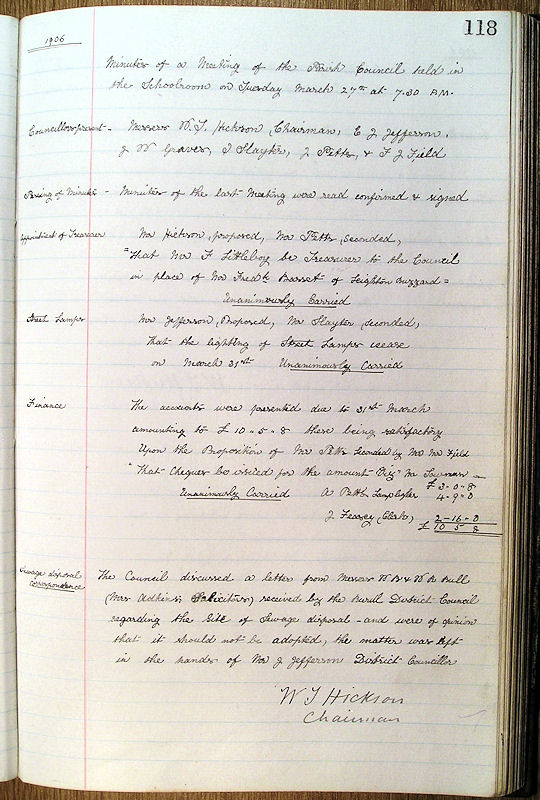 118
1906
Minutes of a Meeting of the Parish Council held in
the Schoolroom on Tuesday March 27th at 7.30 P.M.
Councillors present - Messrs W. T. Hickson, Chairman, E J Jefferson,
J W Graves, J Slayter, J Petts, & F J Field
Passing of Minutes - Minutes of the last Meeting were read confirmed & signed
Appointment of Treasurer Mr Hickson, proposed, Mr Petts, seconded,
"That Mr F Littleboy be Treasurer to the Council
in place of Mr Fredk Bassett of Leighton Buzzard =
Unanimously Carried
Street Lamps Mr Jefferson, Proposed, Mr Slayter, seconded,
That the lighting of Street Lamps cease
on March 31st Unanimously Carried
Finance The accounts were presented due to 31st March
amounting to £10 - 5 - 8 these being satisfactory
Upon the Proposition of Mr Petts Seconded by Mr Field
"That Cheques be issued for the amount Viz" Mr
£ 3 - 0 - 8
Unanimously Carried A Petts Lamplighter 4 - 9 - 0
J Feasey (Clerk) 2 - 16 - 0
£ 10 5 8
Sewage disposal
Correspondence
The Council discussed a letter from Messrs W B & W R Bull
(Mrs Adkins Solicitors) received by the Rural District Council
regarding the Site of Sewage disposal - and were of opinion
that it should not be adopted, the matter was left
in the hands of Mr J Jefferson District Councillor
W T Hickson
Chairman